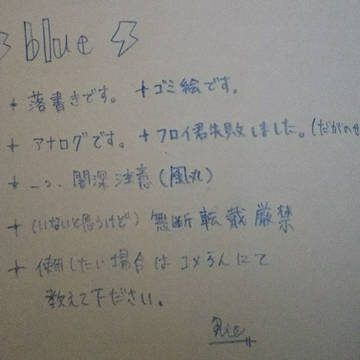 blue
+ 落書きです。 +ゴミ絵です。
+ アナログです。 +フロイ君失敗しました。(だがのせ
+ 闇深注意(風丸)
+ (いないと思うけど) 無断転載厳禁
+ 使用したい場合はコメらんにて
教えて下ださい。